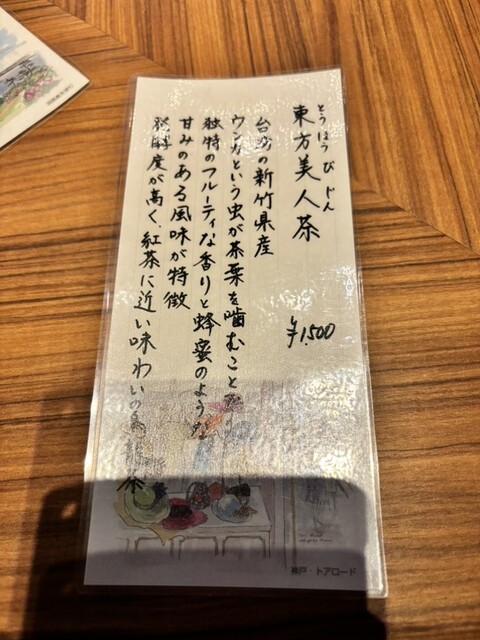 とうほうびじん
東方美人茶
¥1,500
台湾の新竹県産
ウンカという虫が茶葉を噛むことにより
独特のフルーティな香りと蜂蜜のような
甘みのある風味が特徴
発酵度が高く、紅茶に近い味わいの烏龍茶
神戸・トアロード